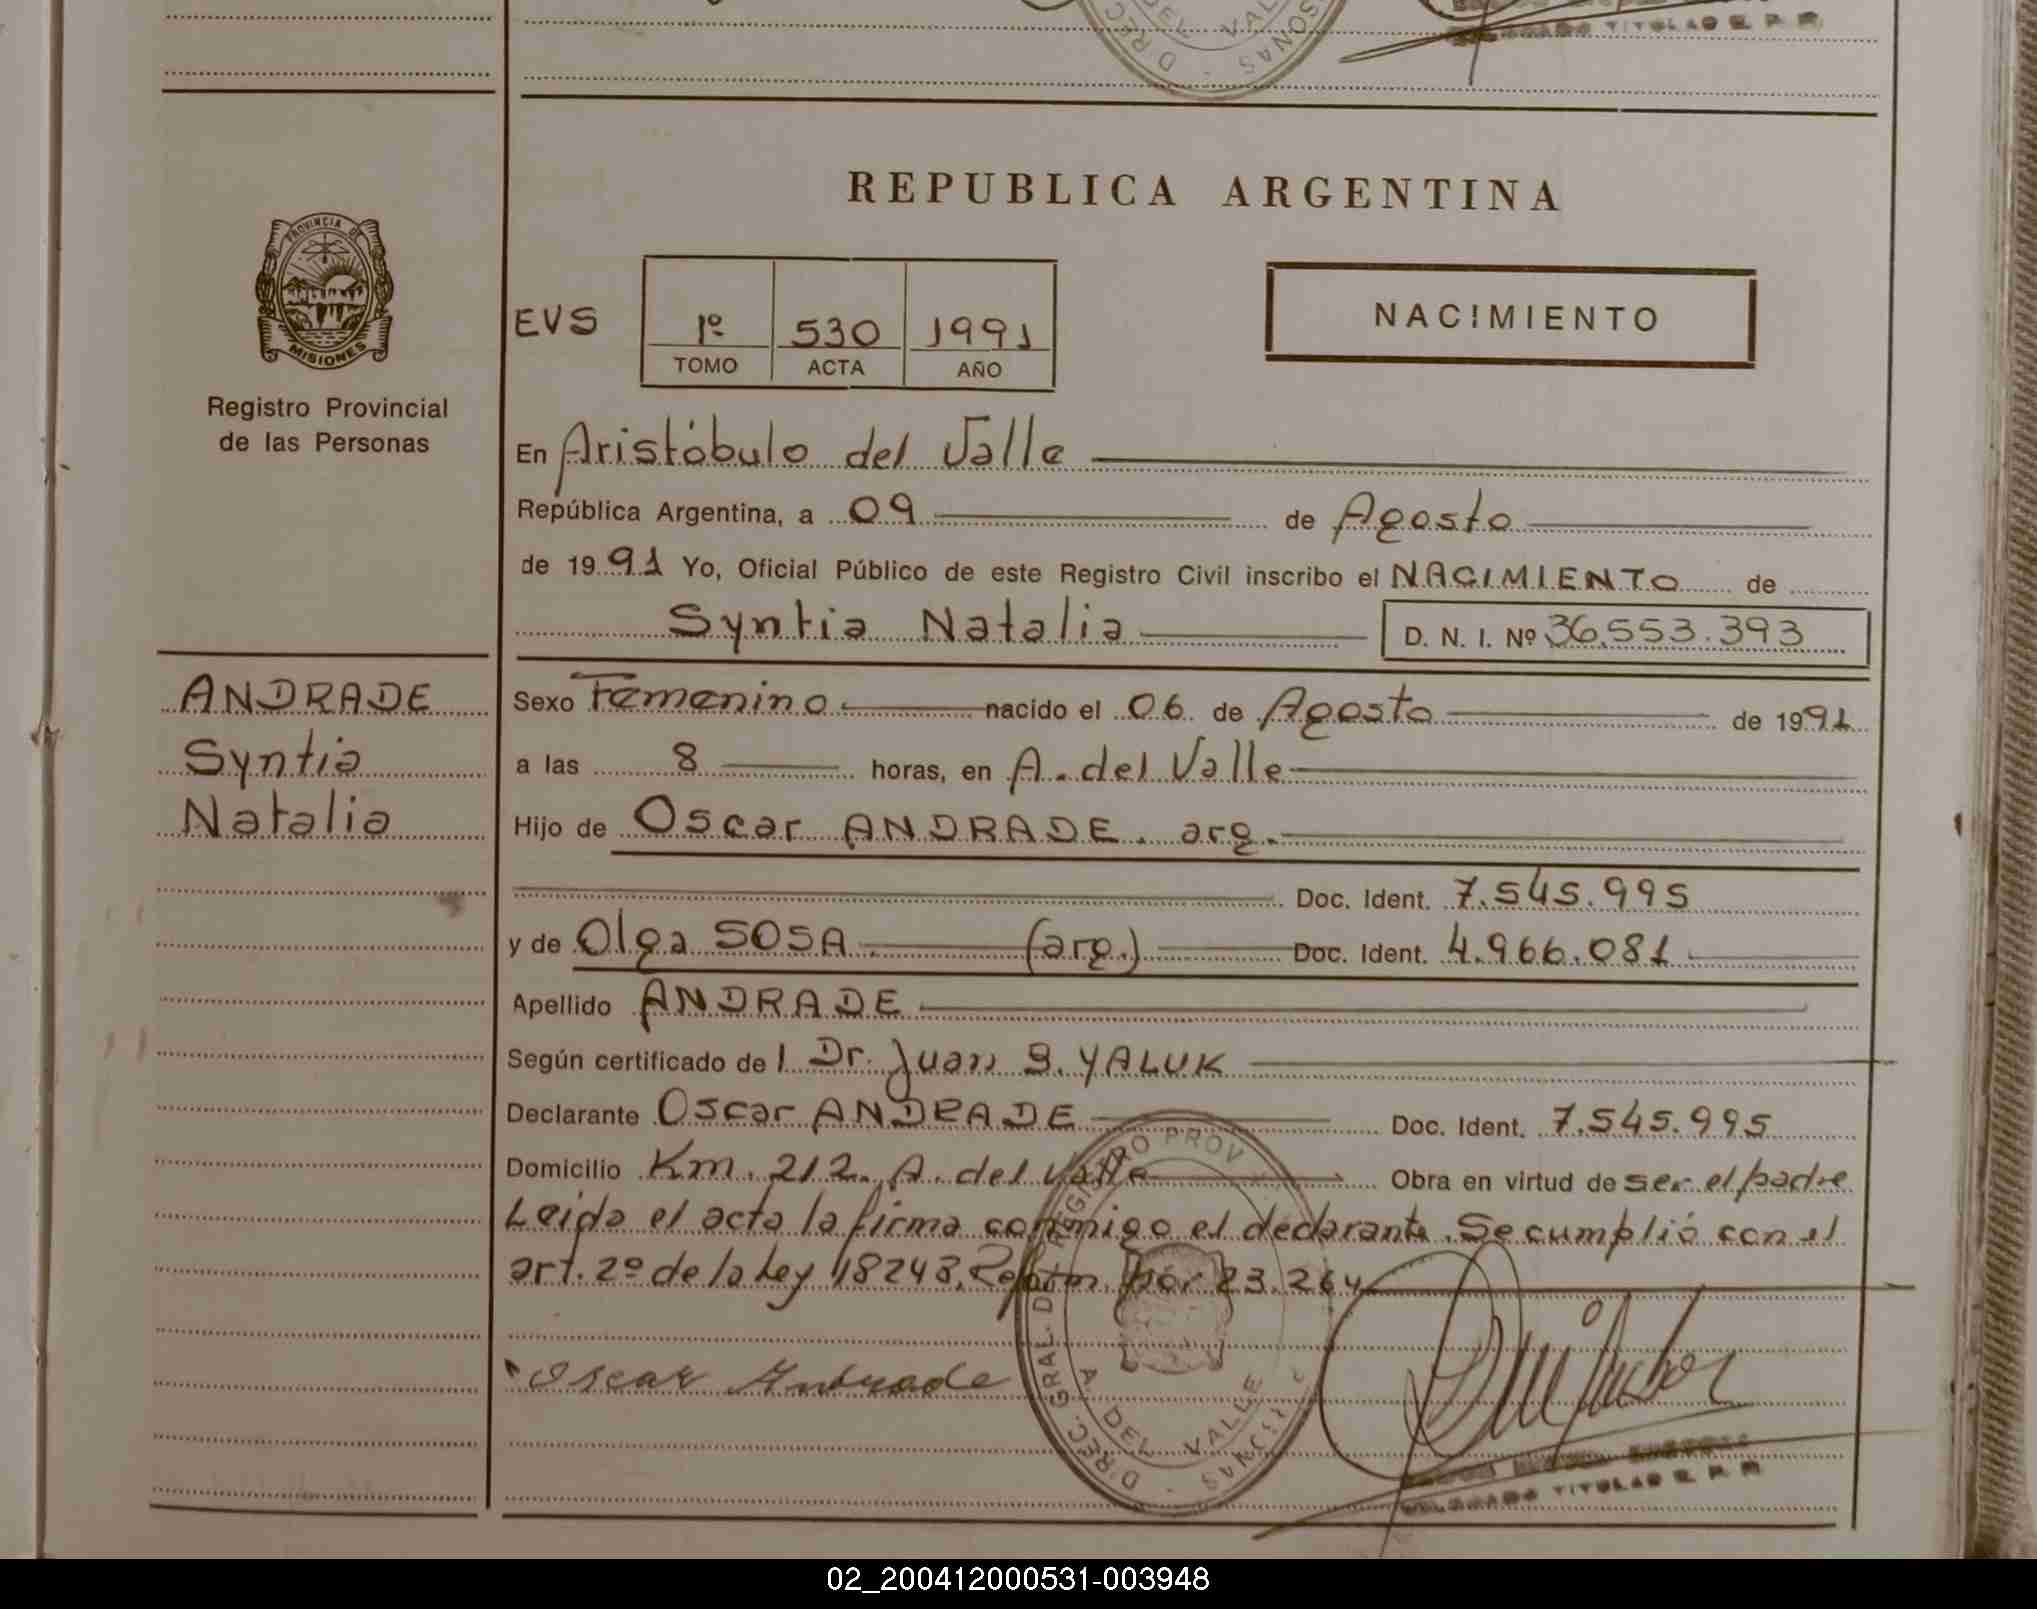 REPUBLICA ARGENTINA
PROVINCIA DE
MISIONES
Registro Provincial
de las Personas
EVS
1º 530 1991
TOMO ACTA AÑO
NACIMIENTO
En Aristóbulo del Valle
República Argentina, a 09 de Agosto
de 1991 Yo, Oficial Público de este Registro Civil inscribo el NACIMIENTO de
Syntia Natalia D. N. I. Nº 36.553.393
ANDRADE
Syntia
Natalia
Sexo Femenino nacido el 06 de Agosto de 1991
a las 8 horas, en A. del Valle
Hijo de Oscar ANDRADE. arg.
Doc. Ident. 7.545.995
y de Olga SOSA. (arg.) Doc. Ident. 4.966.081
Apellido ANDRADE
Según certificado de l Dr. Juan S. YALUK
Declarante Oscar ANDRADE Doc. Ident. 7.545.995
Domicilio Km. 212. A. del Valle Obra en virtud de ser el padre
Leida el acta la firma conmigo el declarante. Se cumplió con el
art. 2º de la Ley 18248. por 23.264
Oscar Andrade
DIREC. GRAL. DE REGISTRO PROV
A. DEL VALLE
TITULAR R. P. P.
02_200412000531-003948